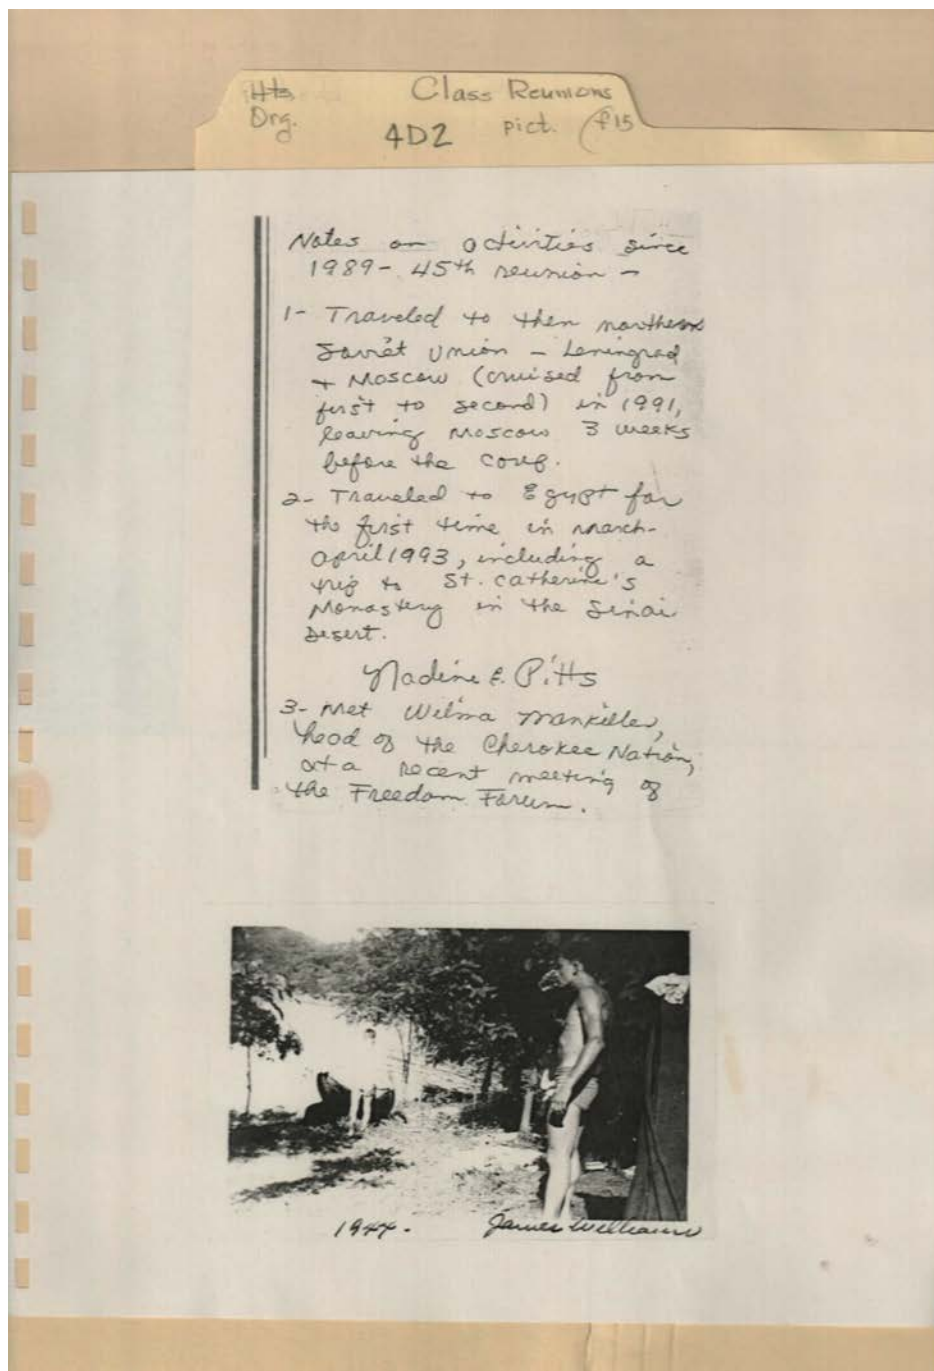 Hts. Class Reunions
Org. 4D2 pict. (f15
Notes on activities since
1989- 45th reunion -
1- Traveled to then northern
Soviet Union - Leningrad
+ Moscow (cruised from
first to second) in 1991,
leaving Moscow 3 weeks
before the coup.
2- Traveled to Egypt for
the first time in March-
April 1993, including a
trip to St. Catherine's
Monastery in the Sinai
Desert.
Nadine E. Pitts
3- Met Wilma Mankiller,
head of the Cherokee Nation,
at a recent meeting of
the Freedom Forum.
1944. James Williams